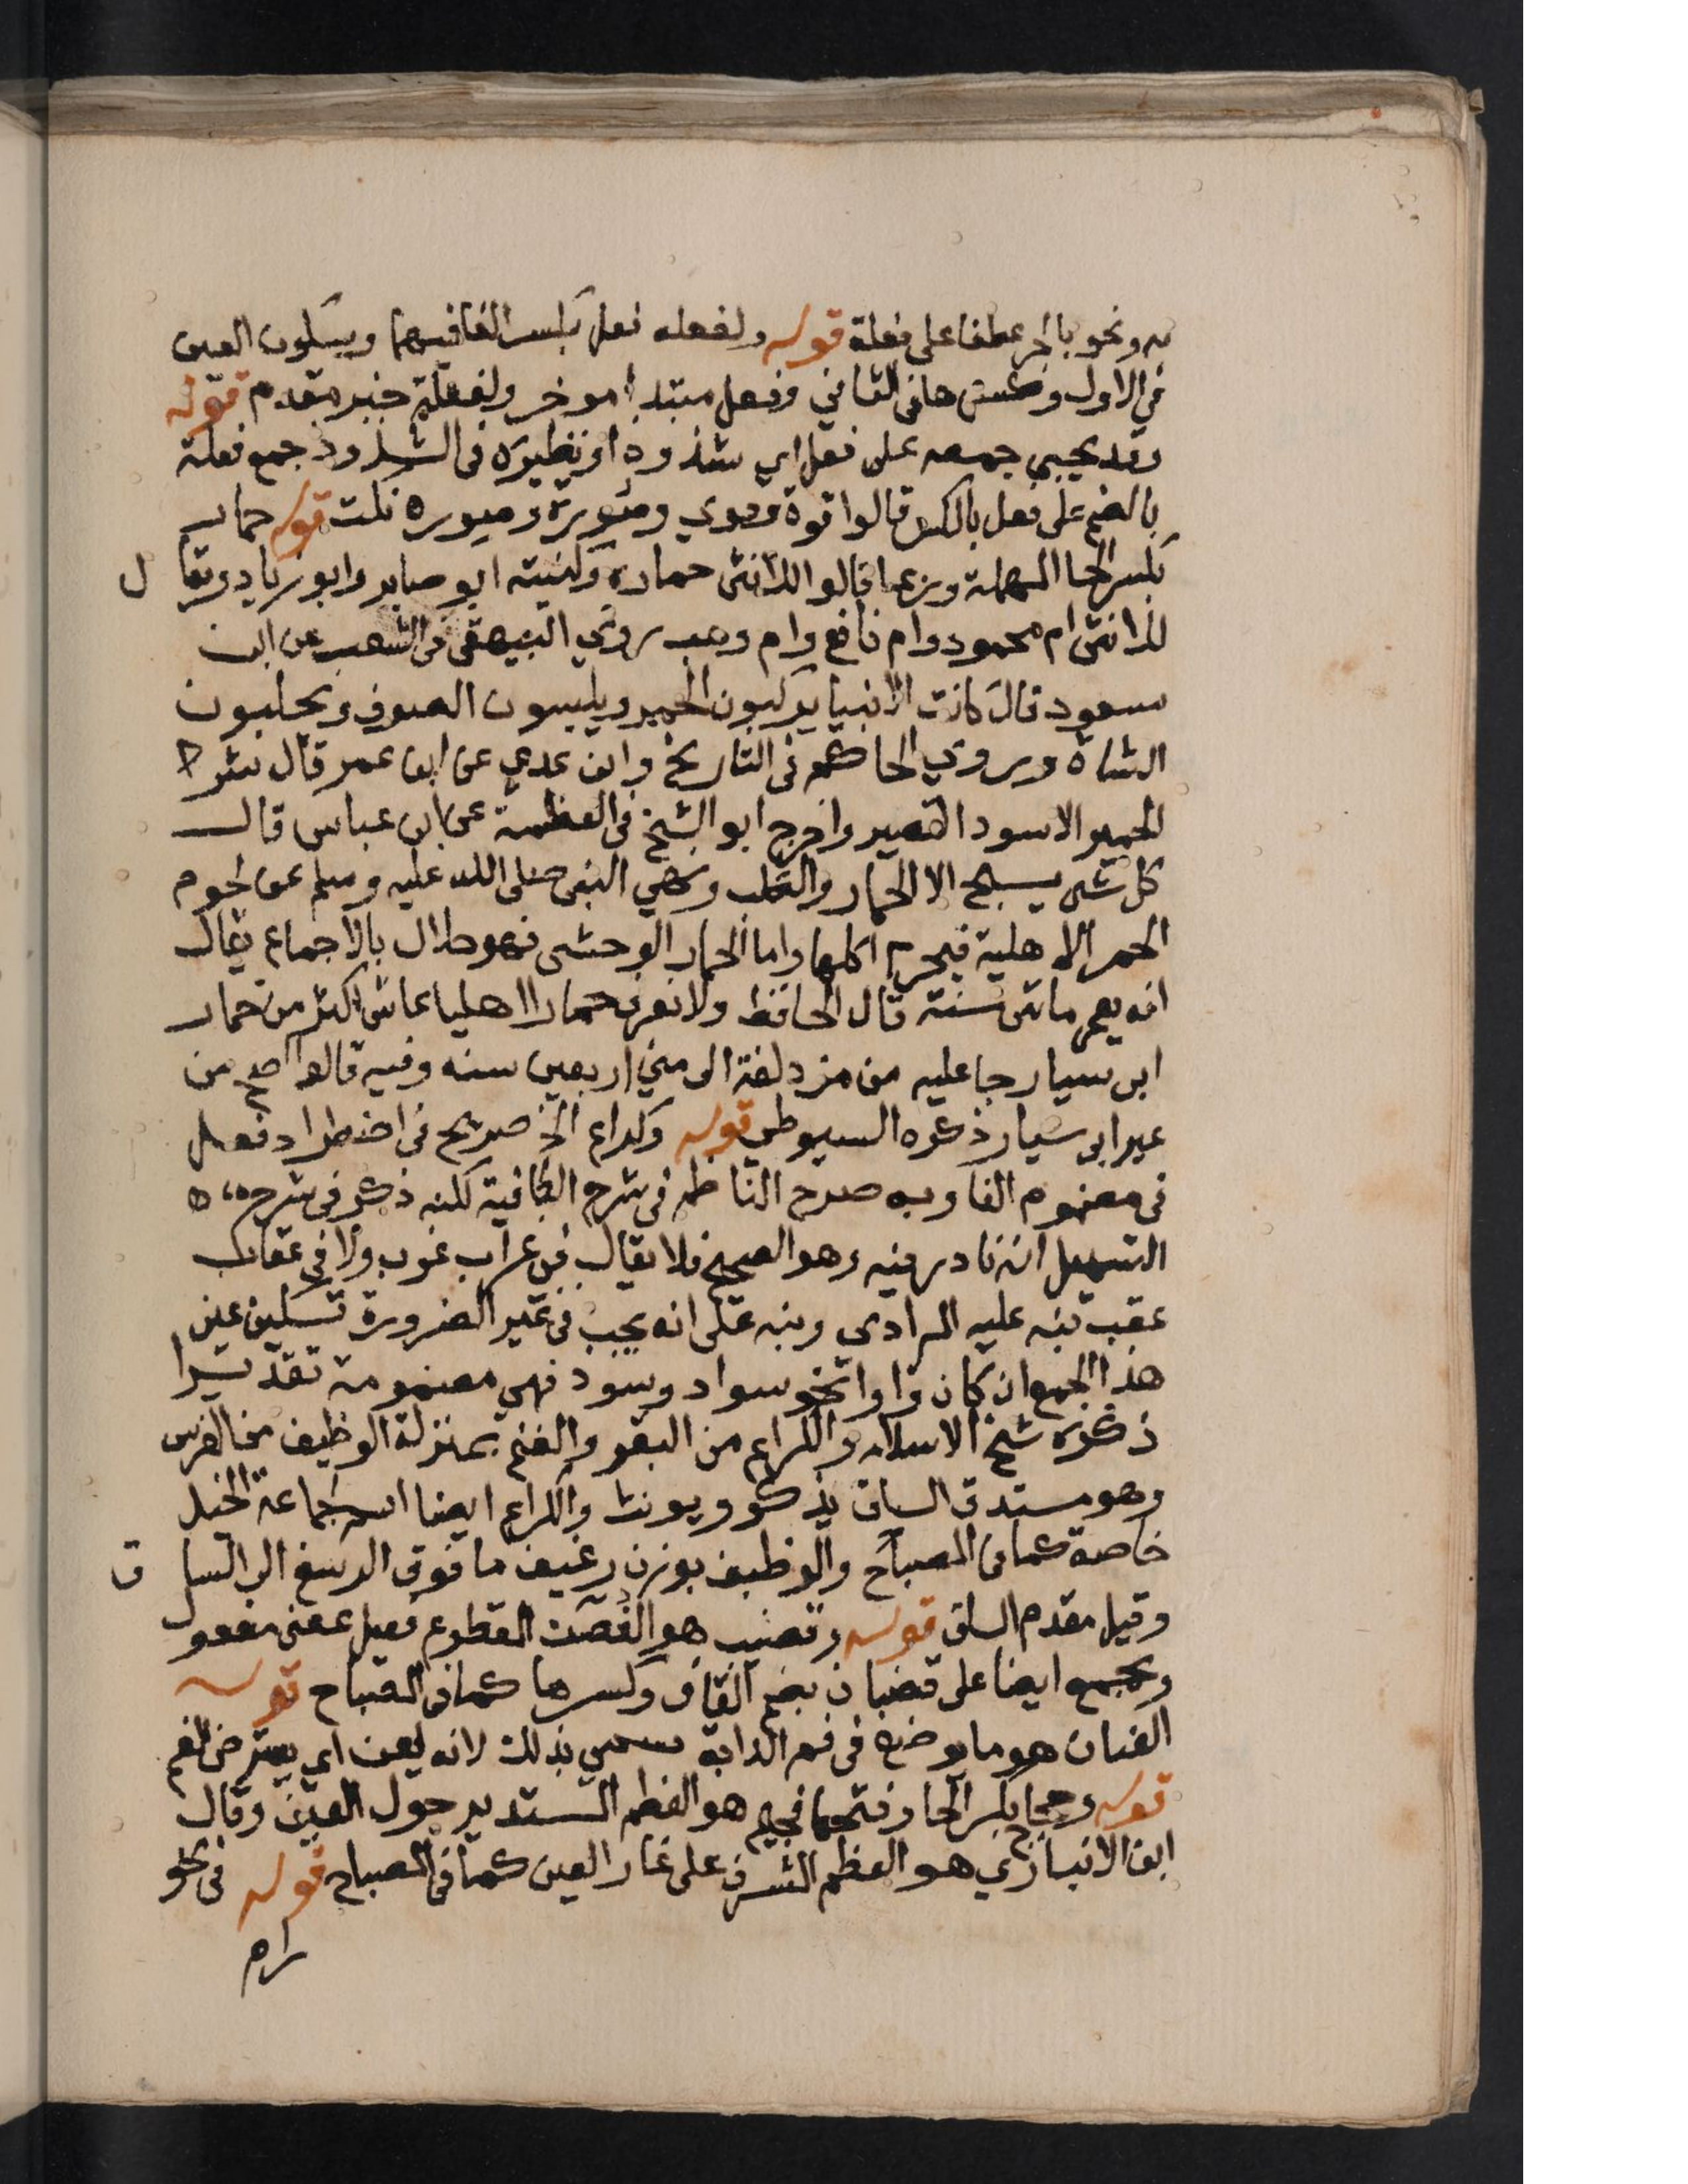 به ونحو بالجر عطفا على فعلة قوله ولفعله فعل بكسر الفا فيهما وبسكون العين
في الاول وفتحها في الثاني وفعل مبتدا موخر ولفعلة خبر مقدم قوله
وقد يجيي جمعه على فعل اي شذوذا ونظيره في الشذوذ جمع فعلة
بالضم على فعل بالكسر قالوا قوة وقوي وصورة وصور قلت قوله حمار
بكسر الحا المهملة وربما قالوا للانثى حمارة وكنيته ابو صابر وابو زياد ويقال
للانثى ام محمود وام نافع وام وهب روي البيهقي في الشعب عن ابن
مسعود قال كانت الانبيا يركبون الحمير ويلبسون الصوف ويحلبون
الشاة وروي الحاكم في التاريخ وابن عدي عن ابن عمر قال شر
الحمير الاسود القصير واخرج ابو الشيخ في العظمة عن ابن عباس قال
كل شي يسبح الا الحمار والكلب ونهي النبي صلى الله عليه وسلم عن لحوم
الحمر الاهلية فيحرم اكلها واما الحمار الوحشي فهو حلال بالاجماع يقال
انه يعمر مائتي سنة قال الحافظ ولا نعرف حمارا اهليا عاش اكثر من حمار
ابي سيارجا عليه من مزدلفة الى مني اربعين سنه وفيه قالوا اصح من
عير ابي سيار ذكره السيوطي قوله وكراع الخ صريح في اضطراد فعل
في مضموم الفا وبه صرح الناظم في شرح الكافية لكنه ذكر في شرح
التسهيل انه نادر فيه وهو الصحيح فلا يقال في غراب غرب ولا في عقاب
عقب نبه عليه المرادى ونبه على انه يجب في غير الضرورة تسكين عين
هذا الجمع ان كان واوا نحو سوار وسور فهي مضمومة تقديرا
ذكره شيخ الاسلام والكراع من البقر والغنم بمنزلة الوظيف من الفرس
وهو مستدق الساق يذكر ويونث والكراع ايضا اسم لجماعة الخيل
خاصة كما في المصباح والوظيف بوزن رغيف ما فوق الرسغ الى الساق
وقيل مقدم الساق قوله وقضيب هو الغصن المقطوع فعيل بمعنى مفعو
ويجمع ايضا على قضبان بضم القاف وكسرها كما في المصباح قوله
العنان هو ما يوضع في فم الدابة سمي بذلك لانه يعن اي يعترض الفم
قوله وحجاج بكسر الحا وفتحها فجيم هو العظم المستدير حول العين وقال
ابن الانباري هو العظم المشرف على غار العين كما في المصباح قوله في نحو
رام